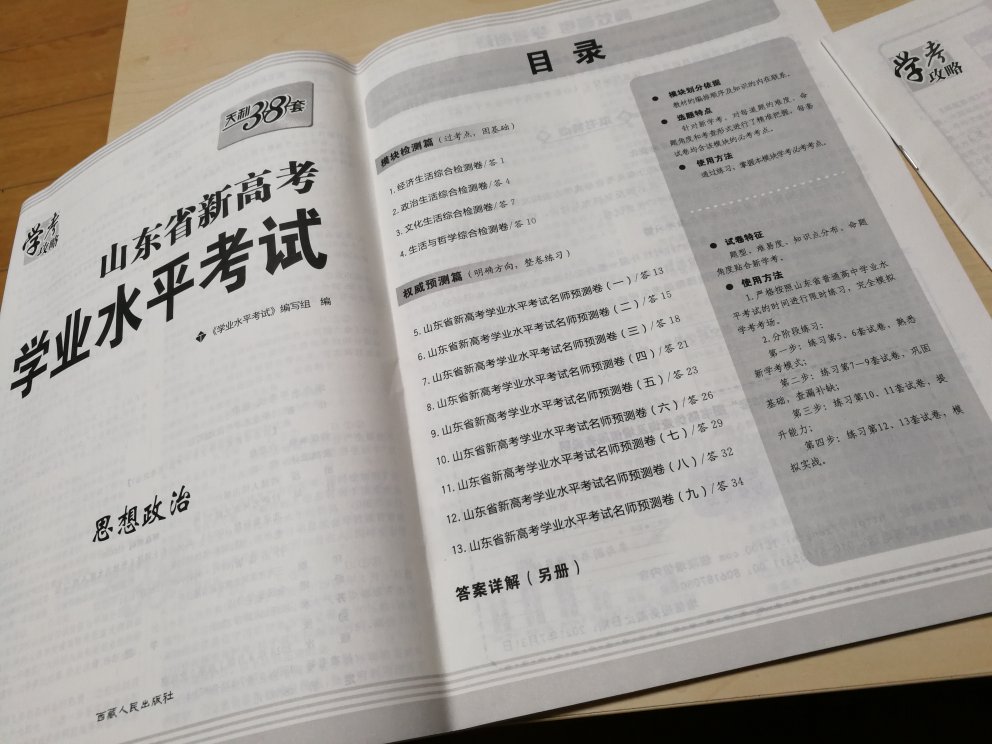 天利38套
学考攻略
山东省新高考
学业水平考试
《学业水平考试》编写组 编
思想政治
西藏人民出版社
目 录
模块检测篇(过考点,固基础)
1.经济生活综合检测卷/答1
2.政治生活综合检测卷/答4
3.文化生活综合检测卷/答7
4.生活与哲学综合检测卷/答10
权威预测篇(明确方向,整卷练习)
5.山东省新高考学业水平考试名师预测卷(一)/答13
6.山东省新高考学业水平考试名师预测卷(二)/答15
7.山东省新高考学业水平考试名师预测卷(三)/答18
8.山东省新高考学业水平考试名师预测卷(四)/答21
9.山东省新高考学业水平考试名师预测卷(五)/答23
10.山东省新高考学业水平考试名师预测卷(六)/答26
11.山东省新高考学业水平考试名师预测卷(七)/答29
12.山东省新高考学业水平考试名师预测卷(八)/答32
13.山东省新高考学业水平考试名师预测卷(九)/答34
答案详解(另册)
● 模块划分依据
教材的编排顺序及知识的内在联系。
● 选题特点
针对新学考,对每道题的难度、命
题角度和考查形式进行了精准把握,每套
试卷均含该模块的必考考点。
● 使用方法
通过练习,掌握本模块学考必考考点。
● 试卷特征
题型、难易度、知识点分布、命题
角度贴合新学考。
● 使用方法
1.严格按照山东省普通高中学业水
平考试的时间进行限时练习,完全模拟
学考考场。
2.分阶段练习:
第一步:练习第5、6套试卷,熟悉
新学考模式;
第二步:练习第7-9套试卷,巩固
基础,查漏补缺;
第三步:练习第10、11套试卷,提
升能力;
第四步:练习第12、13套试卷,模
拟实战。
学考攻略